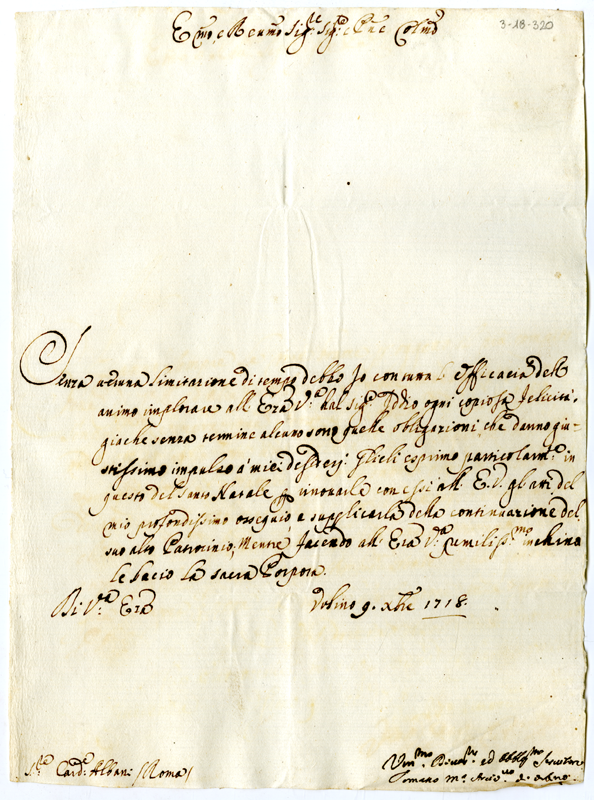 3-18-320
Emo e Revmo Sig.re Sig.re e Pne Colmo
Senza veruna limitazione di tempo debbo Io con tutta l'efficacia dell'
animo implorare all'Eza V.ra dal Sig.r Iddio ogni copiosa felicità,
giache senza termine alcuno sono quelle obligazioni, che danno giu-
stissimo impulso a' miei desiderj. Glieli esprimo particolarm.te in
questo del Santo Natale p rinovarle con essi all'E.V. gli atti del
mio profondissimo ossequio, e supplicarla della continuazione del
suo alto Patrocinio; Mentre facendo all'Eza V.ra umiliss.mo inchino
le bacio la sacra Porpora.
Di V.ra Eza
Urbino 9. Xbre 1718.
S.r Card.e Albani (Roma)
Um.mo Divot.mo ed Obblig.mo Servitore
Tomaso M.a Arciv.vo d'Urbino